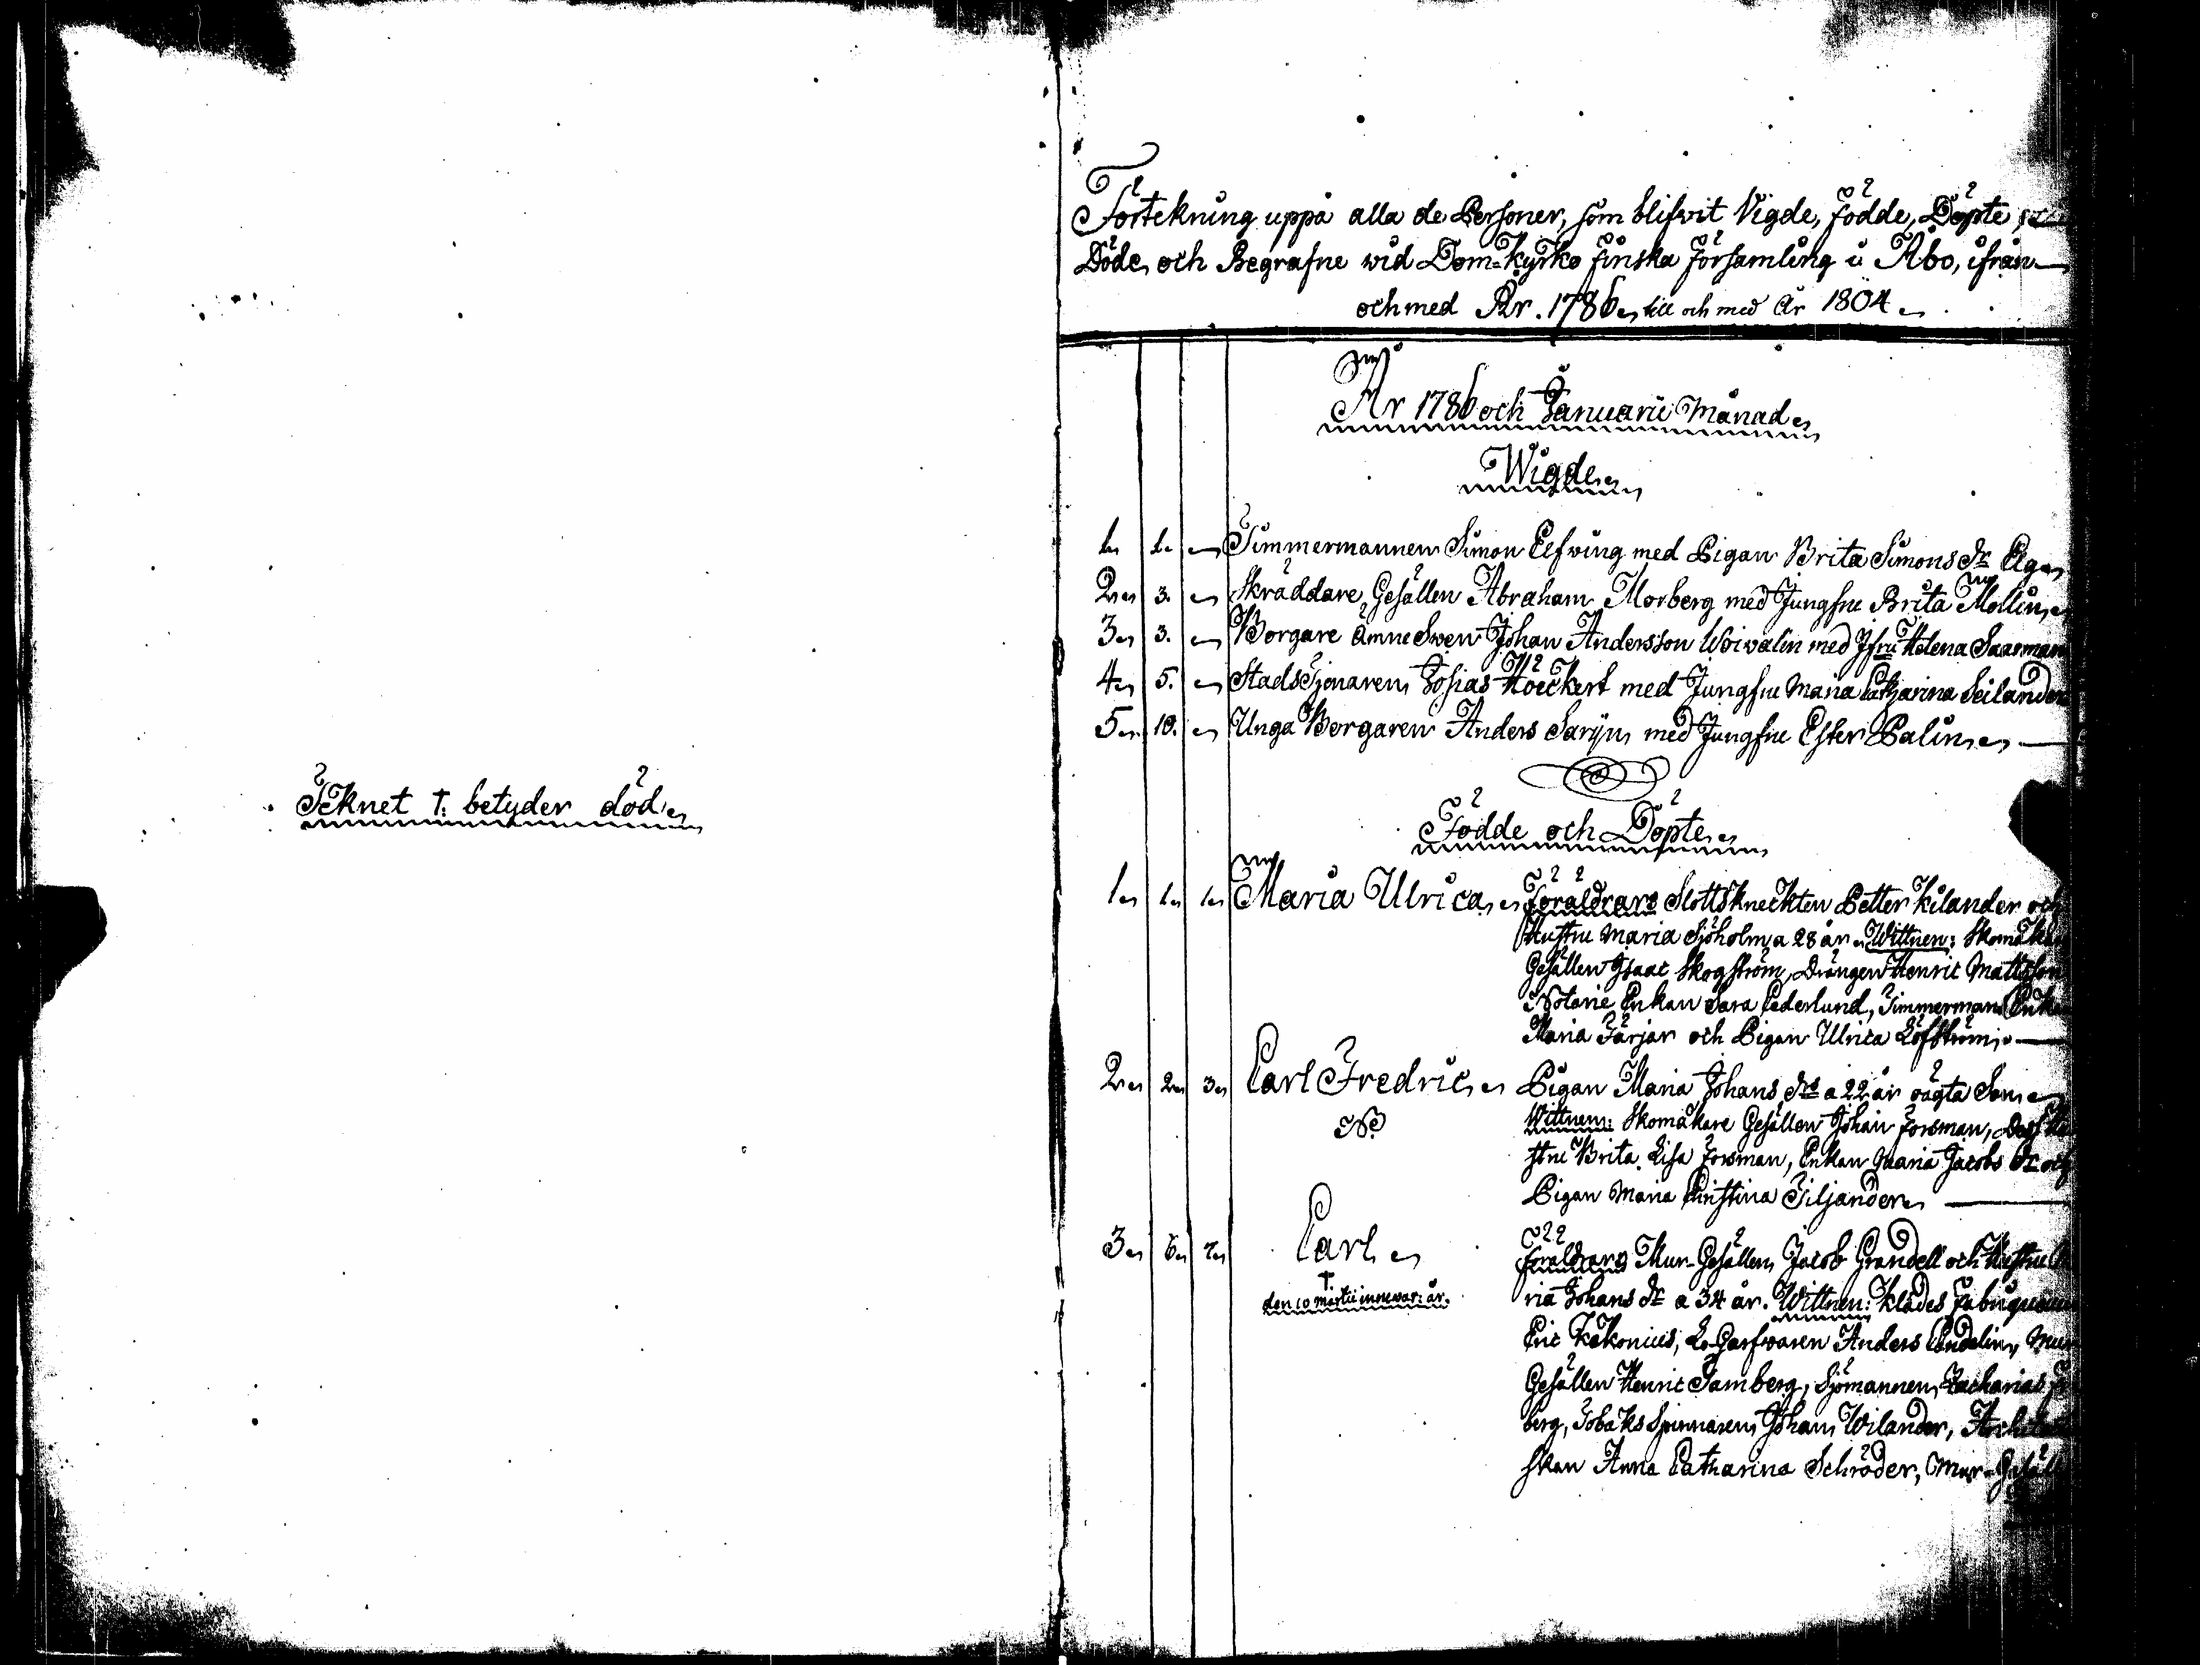 Teknet †. betyder död.
Förtekning uppå alla de Personer, som blifvit Vigde, Födde, Döpte,
Döde, och Begrafne wid Dom-Kyrko Finska Församling i Åbo, ifrån
och med År. 1786, till och med År 1804.
År 1786 och Januarii Månad.
Wigde.
1. 1. Timmermannen Simon Elfving med Pigan Brita Simons dr Elg.
2. 3. Skräddare Gesällen Abraham Morberg med Jungfru Brita Mollin,
3. 3. Borgare Ämne Swen Johan Andersson Woivalin med Jfru Helena Saarman
4. 5. Stads Tjenaren Josias Höckert med Jungfru Maria Catharina Seilander
5. 10. Unga Borgaren Anders Sarijn, med Jungfru Ester Palin.
Födde och Döpte.
1. 1. 1. Maria Ulrica. Föräldrare Slottsknechten Petter Kilander och
Hustru Maria Sjöholm a 28 år. Wittnen: Skomakare
Gesällen Isaac Skogström, Drängen Henric Mattsson
Notarie Enkan Sara Cederlund, Timmermans Enkan
Maria Färjar och Pigan Ulrica Löfström.
2. 2. 3. Carl Fredric. Pigan Maria Johans dr a 22 år oägta Son.
NB Wittnen: Skomakare Gesällen Johan Forsman, Dess Hu
stru Brita Lisa Forsman, Enkan Maria Jacobs dr och
Pigan Maria Christina Giljander.
3. 6. 7. Carl. Föräldrare Mur-Gesällen Jacob Grandell och Hustru
† ria Johans dr a 34 år. Wittnen: Klädes Fabriqueuren
den 10 martii innevar: år. Eric Kekonius, Lo-Garfvaren Anders Lindelin, Mur
Gesällen Henric Tamberg, Sjömannen Zacharias
berg, Tobaks Spinnaren Johan Wilander,
skan Anna Catharina Schröder, Mur-Gesäll